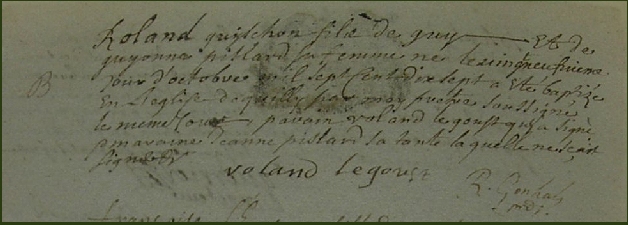 B
Roland guyschon fils de guy — Et de
guyonne pistard sa femme ne le
jour d'octobre mil sept cent dix sept a Ete baptisé
En l'eglise par moy pretre soussigné
le meme jour parain roland legoust qui a signé
maraine jeanne pistard sa tante laquelle ne sçait
signer
roland legoust
R.